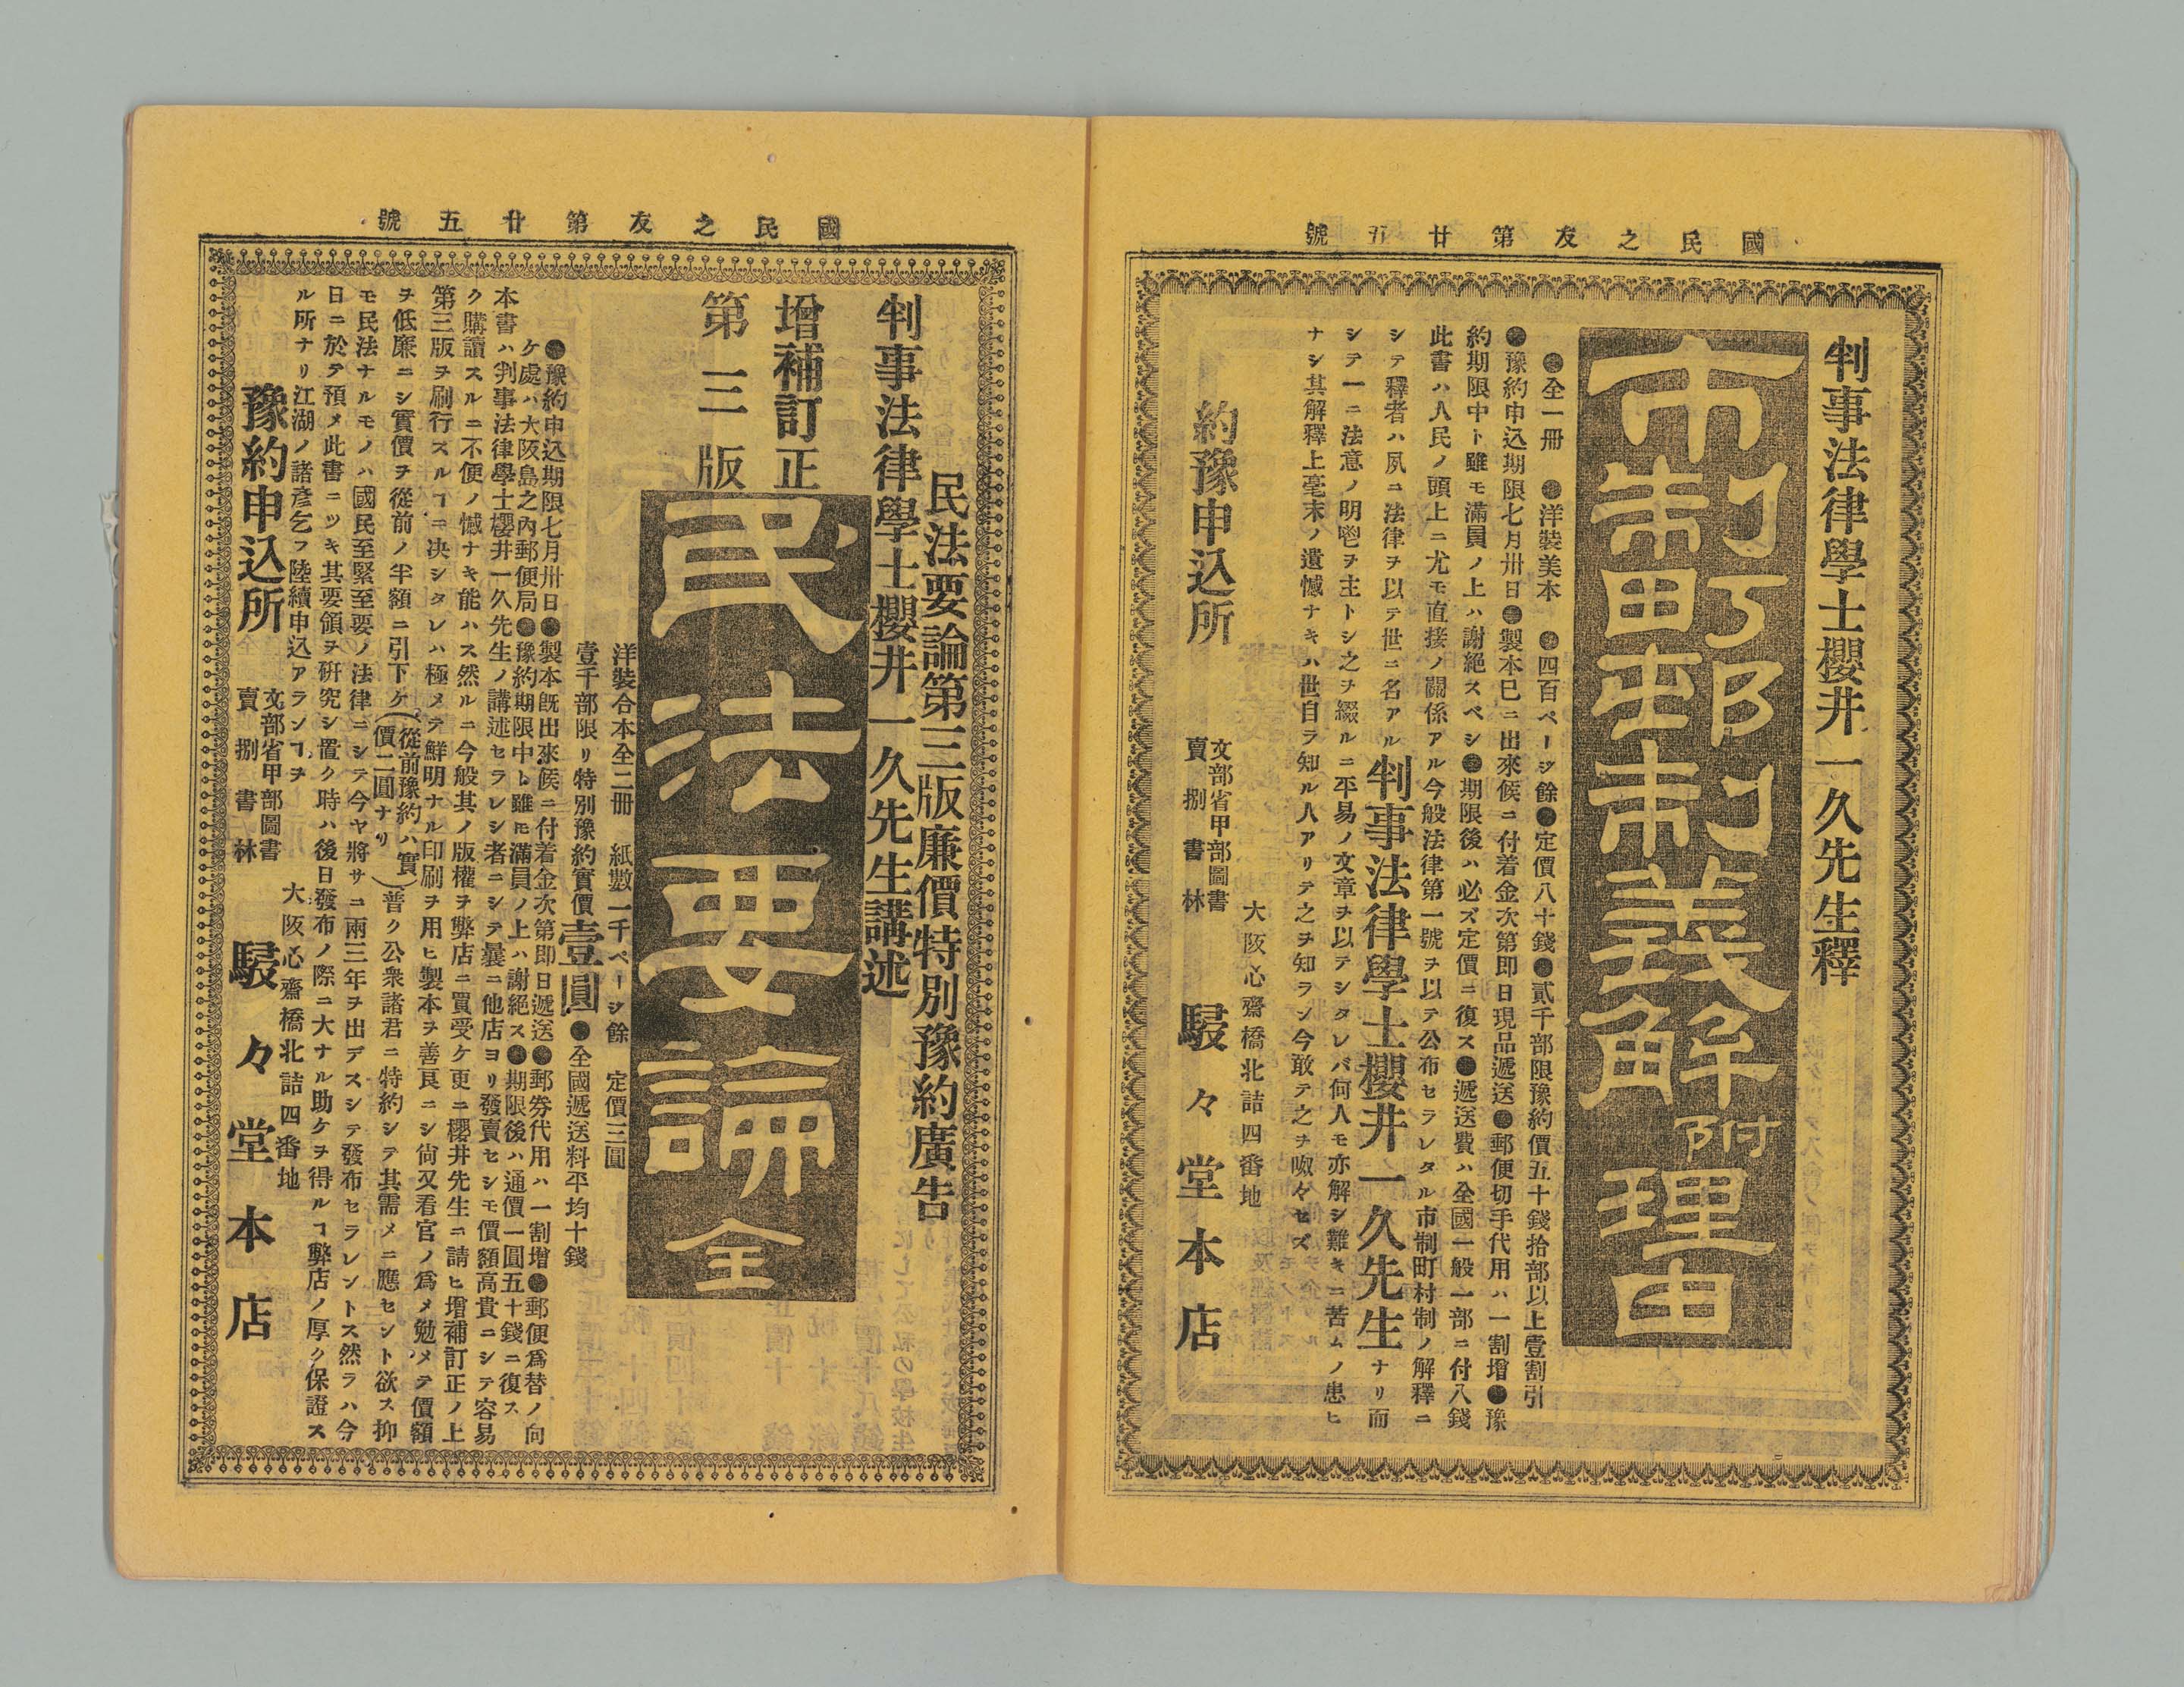 國民之友第廿五號
判事法律學士櫻井一久先生釋
市制町村制義解附理由
●全一冊　●洋裝美本　●四百ページ餘●定價八十錢●貳千部限豫約價五十錢拾部以上壹割引
●豫約申込期限七月卅日●製本已ニ出來候ニ付着金次第即日現品遞送●郵便切手代用ハ一割增●豫
約期限中ト雖モ滿員ノ上ハ謝絕スベシ●期限後ハ必ズ定價ニ復ス●遞送費ハ全國一般一部ニ付八錢
此書ハ人民ノ頭上ニ尤モ直接ノ關係アル今般法律第一號ヲ以テ公布セラレタル市制町村制ノ解釋ニ
シテ釋者ハ夙ニ法律ヲ以テ世ニ名アル判事法律學士櫻井一久先生ナリ而
シテ一ニ法意ノ明鬯ヲ主トシ之ヲ綴ルニ平易ノ文章ヲ以テシタレバ何人モ亦解シ難キニ苦ムノ患ヒ
ナシ其解釋上毫末ノ遺憾ナキハ世自ラ知ル人アリテ之ヲ知ラン今敢テ之ヲ呶々セズ
大阪心齋橋北詰四番地
約豫申込所
文部省甲部圖書
賣捌書林
駸々堂本店
國民之友第廿五號
民法要論第三版廉價特別豫約廣告
判事法律學士櫻井一久先生講述
增補訂正
第三版
民法要論全
洋裝合本全二冊　紙數一千ページ餘　定價三圓
壹千部限リ特別豫約實價壹圓●全國遞送料平均十錢
●豫約申込期限七月卅日●製本既出來候ニ付着金次第即日遞送●郵券代用ハ一割增●郵便爲替ノ向
ケ處ハ大阪島之內郵便局●豫約期限中ト雖モ滿員ノ上ハ謝絕ス●期限後ハ通價一圓五十錢ニ復ス
本書ハ判事法律學士櫻井一久先生ノ講述セラレシ者ニシテ曩ニ他店ヨリ發賣セシモ價額高貴ニシテ容易
ク購讀スルニ不便ノ憾ナキ能ハス然ルニ今般其ノ版權ヲ弊店ニ買受ケ更ニ櫻井先生ニ請ヒ增補訂正ノ上
第三版ヲ刷行スルヿニ决シタレハ極メテ鮮明ナル印刷ヲ用ヒ製本ヲ善良ニシ尙又看官ノ爲メ勉メテ價額
ヲ低廉ニシ實價ヲ從前ノ半額ニ引下ケ(從前豫約ハ實價二圓ナリ)普ク公衆諸君ニ特約シテ其需メニ應セント欲ス抑
モ民法ナルモノハ國民至緊至要ノ法律ニシテ今ヤ將サニ兩三年ヲ出デスシテ發布セラレントス然ラハ今
日ニ於テ預メ此書ニツキ其要領ヲ硏究シ置ク時ハ後日發布ノ際ニ大ナル助ケヲ得ルヿ弊店ノ厚ク保證ス
ル所ナリ江湖ノ諸彦乞フ陸續申込アランヿヲ
大阪心齋橋北詰四番地
豫約申込所
文部省甲部圖書
賣捌書林
駸々堂本店